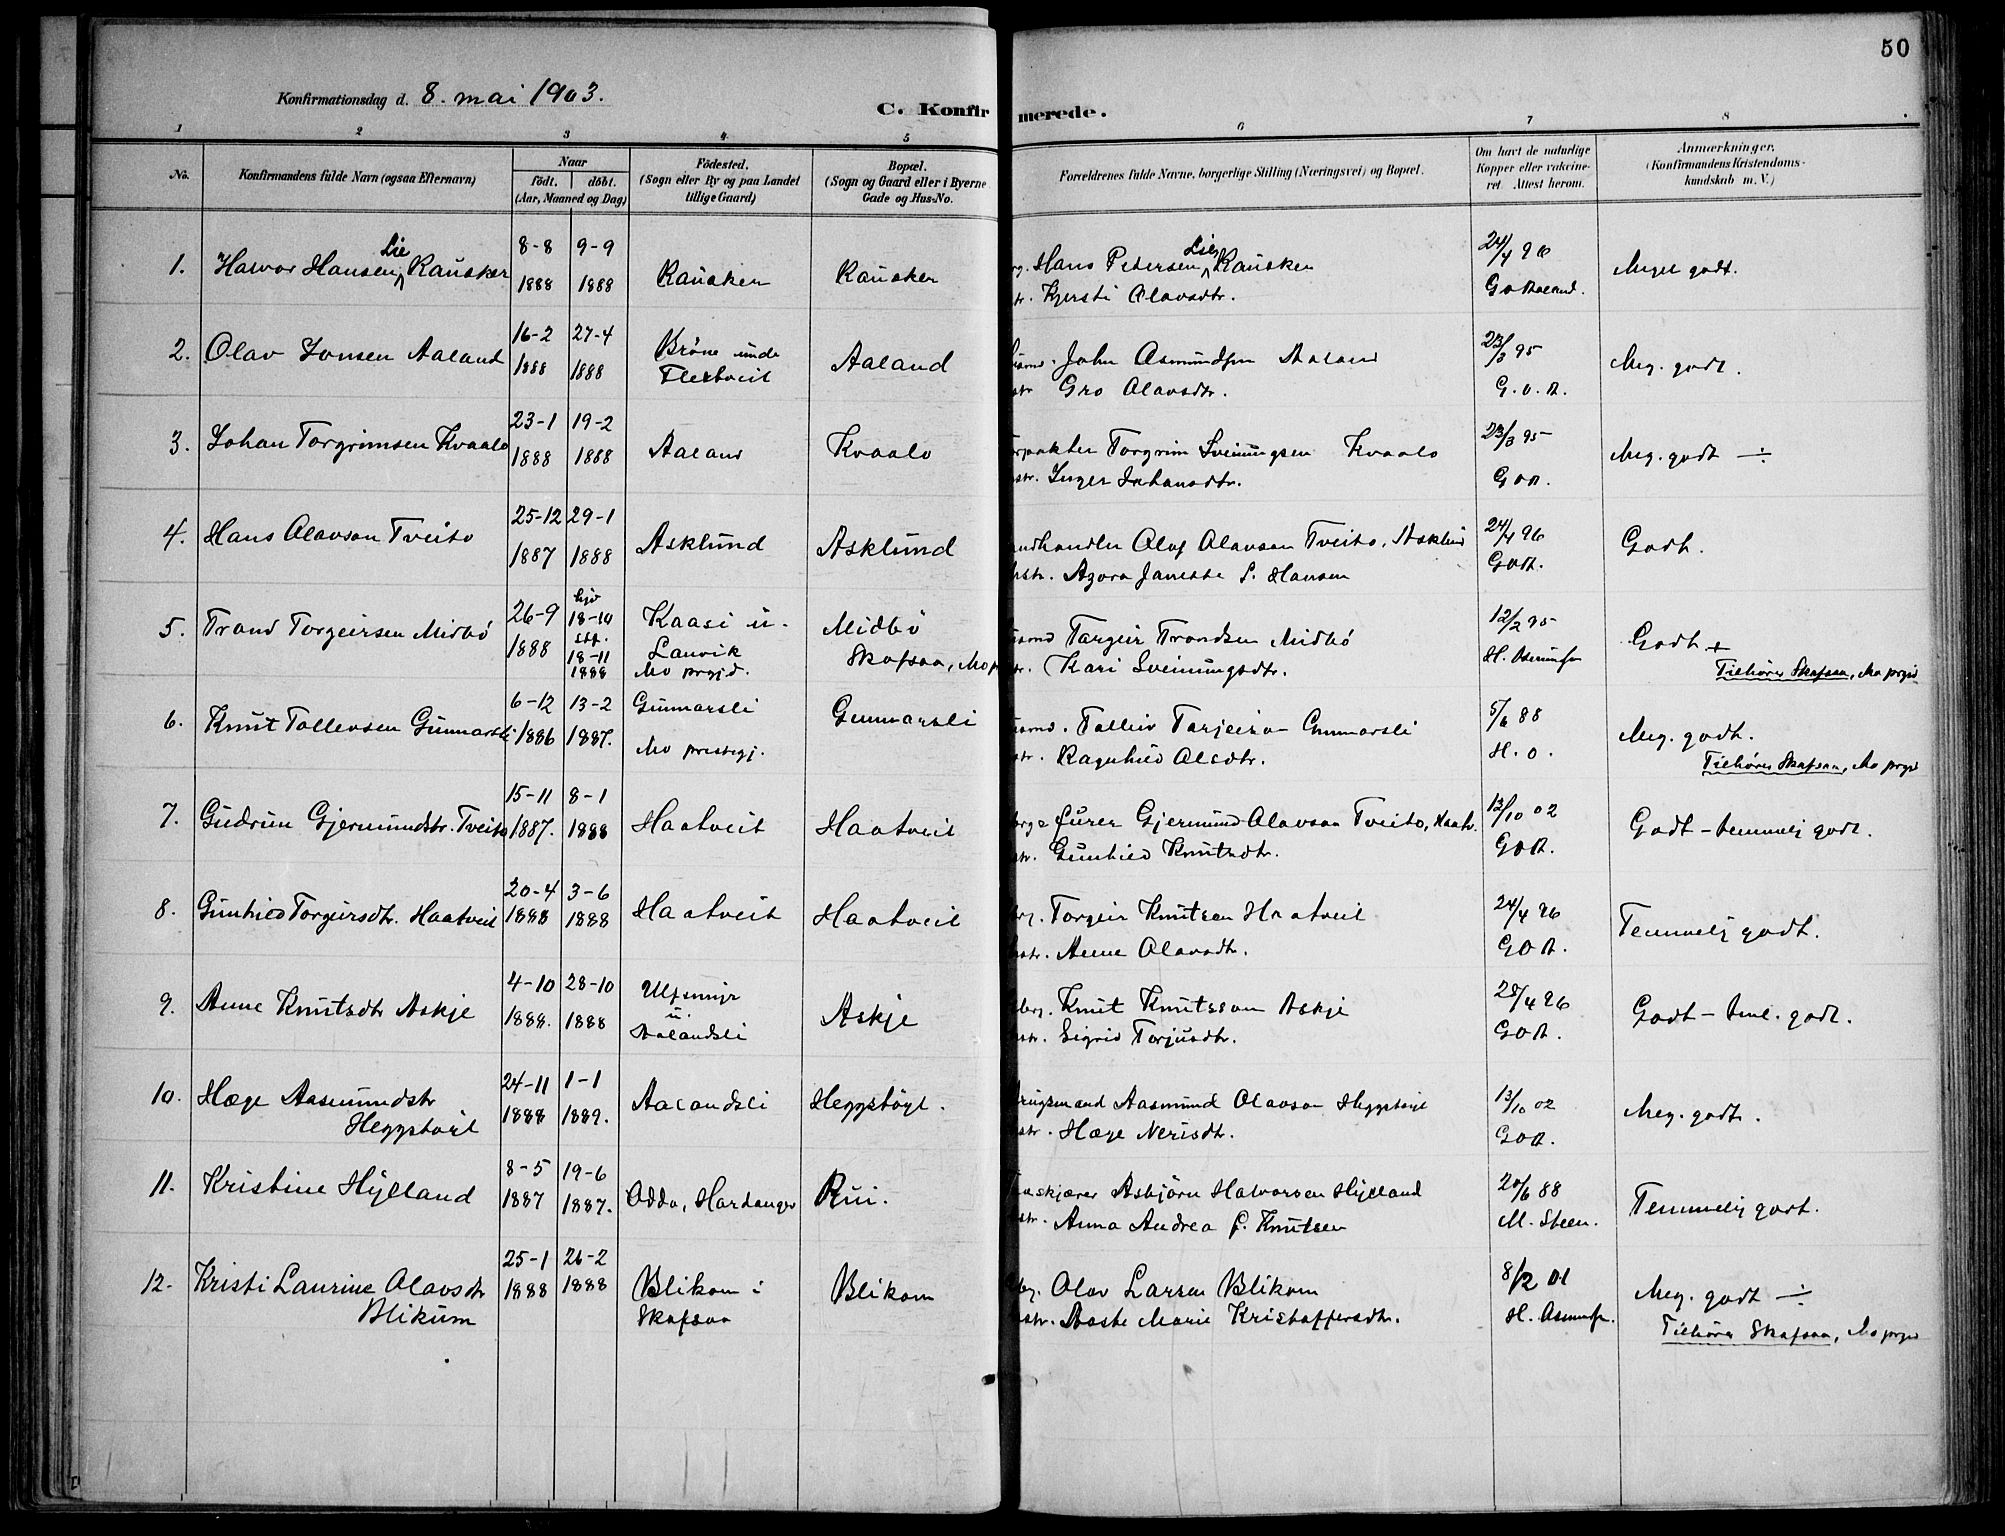 50
Konfirmationsdag d. 8. mai 1903.
C. Konfirmerede.
1 2 3 4 5 6 7 8
No.
Konfirmandens fulde Navn (ogsaa Efternavn)
Naar
födt. döbt.
(Aar, Maaned og Dag)
Födested.
(Sogn eller By og paa Landet
tillige Gaard)
Bopæl.
(Sogn og Gaard eller i Byerne
Gade og Hus-No.
Forældrenes fulde Navne, borgerlige Stilling (Næringsvei) og Bopæl.
Om havt de naturlige
Kopper eller vakcine-
ret Attest herom.
Anmærkninger.
(Konfirmandens Kristendoms-
kundskab m. V.)
1. Halvor Hansen Lie Rausker
8-8 1888
9-9 1888
Rausker
Rausker
Hans Petersen Lie, Rausker
Kjersti Olavsdtr.
24/4 96
Meget godt.
2. Olav Jonsen Aaland
16-2 1888
27-4 1888
Aaland
John Asmundsen Aaland
Gro Olavsdtr.
23/3 95
G. O. A.
Meg. godt.
3. Johan Torgrimsen Kvaalo
23-1 1888
19-2 1888
Aaland
Kvaalo
Torgrim Sveinungsen Kvaalo
Inger Johansdtr.
23/3 95
GOA.
Meg. godt ÷
4. Hans Olavson Tveito
25-12 1887
29-1 1888
Asklund
Asklund
andhandler Olaf Olavson Tveito, Asklund
Azora Janette S. Hansen
24/4 96
GOA.
Godt.
5. Trond Torgeirsen Midbö
26-9 1888
hjd
18-10
stf.
18-11
1888
Kaasi u.
Lauvik
Mo prgjd.
Midbö
Skafsaa, Mo p
Targeir Trondsen Midbö
Kari Sveinungsdtr.
12/2 95
Godt +
Tilhörer Skafsaa, Mo prgjd
6. Knut Tollevsen Gunnarsli
6-12 1886
13-2 1887.
Gunnarsli
Mo prestegj.
Gunnarsli
Tolleiv Tarjeison Gunnarsli
Ragnhild Olsdtr.
5/6 88
H. O.
Meg. godt.
Tilhörer Skafsaa, Mo prgjd
7. Gudrun Gjermundsdtr. Tveito
15-11 1887.
8-1 1888
Haatveit
Haatveit
Gjermund Olavson Tveito, Haatv.
Gunhild Knutsdtr.
13/10 02
GOA.
Godt - temmelig godt.
8. Gunhild Torgeirsdtr. Haatveit
20-4 1888
3-6 1888
Haatveit
Haatveit
Torgeir Knutsen Haatveit
Anne Olavsdtr.
24/4 96
GOA.
Temmelig godt.
9. Anne Knutsdtr Askje
4-10 1888.
28-10 1888
Ulfsmyr
u.
Aalandsli
Askje
Knut Knutsson Askje
Sigrid Torjusdtr.
28/4 96
GOA.
Godt - teml. godt.
10. Hæge Aasmundsdtr
Heggstöyl
24-11 1888
1-1 1889.
Aalandsli
Heggstöyl.
Brugsmand Aasmund Olavson Heggstöyl
Hæge Nerisdtr.
13/10 02
GOA.
Meg. godt.
11. Kristine Hylland
8-5 1887
19-6 1887.
Odda, Hardanger
Rui.
Asbjörn Halvorsen Hylland
Anna Andrea f. Knutsen
20/6 88
M. Steen.
Temmelig godt.
12. Kristi Laurine Olavsdtr
Blikum
25-1 1888
26-2 1888
Blikom i
Skafsaa
Blikom
Olav Larsen Blikom
Aaste Marie Kristoffersdtr.
8/2 01
Meg. godt ÷
Tilhörer Skafsaa, Mo prgjd